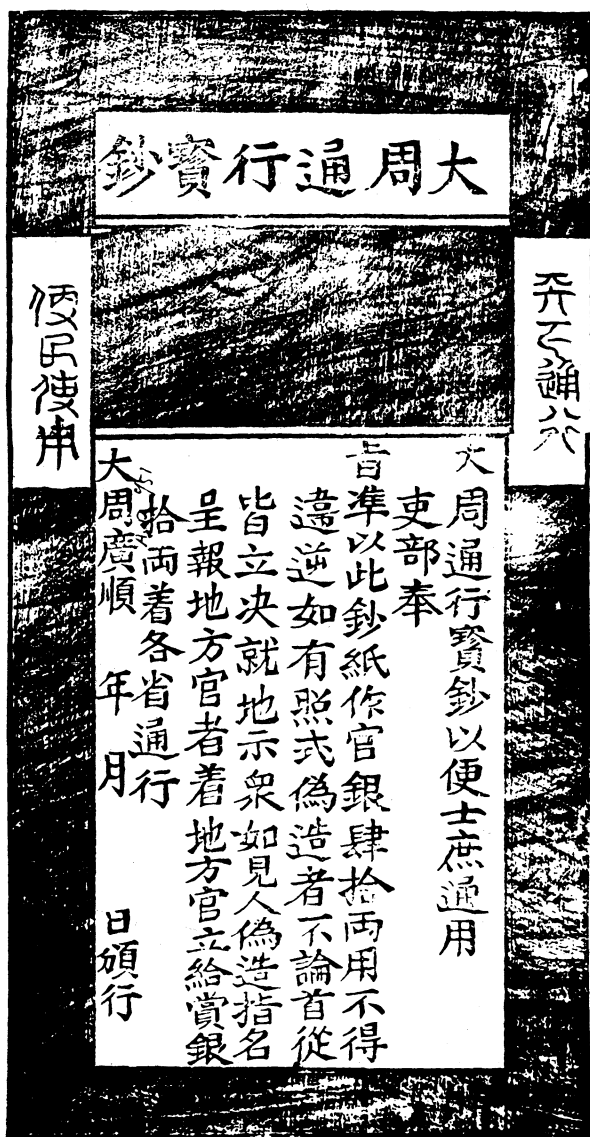 大周通行寳鈔
天下通行
便民使用
大周通行寳鈔以便士庶通用
吏部奉
旨準以此鈔紙作官銀肆拾両用不得
違逆如有照式偽造者不論首從
皆立决就地示衆如見人偽造指名
呈報地方官者着地方官立給賞銀
拾両着各省通行
大周廣順 年 月 日頒行